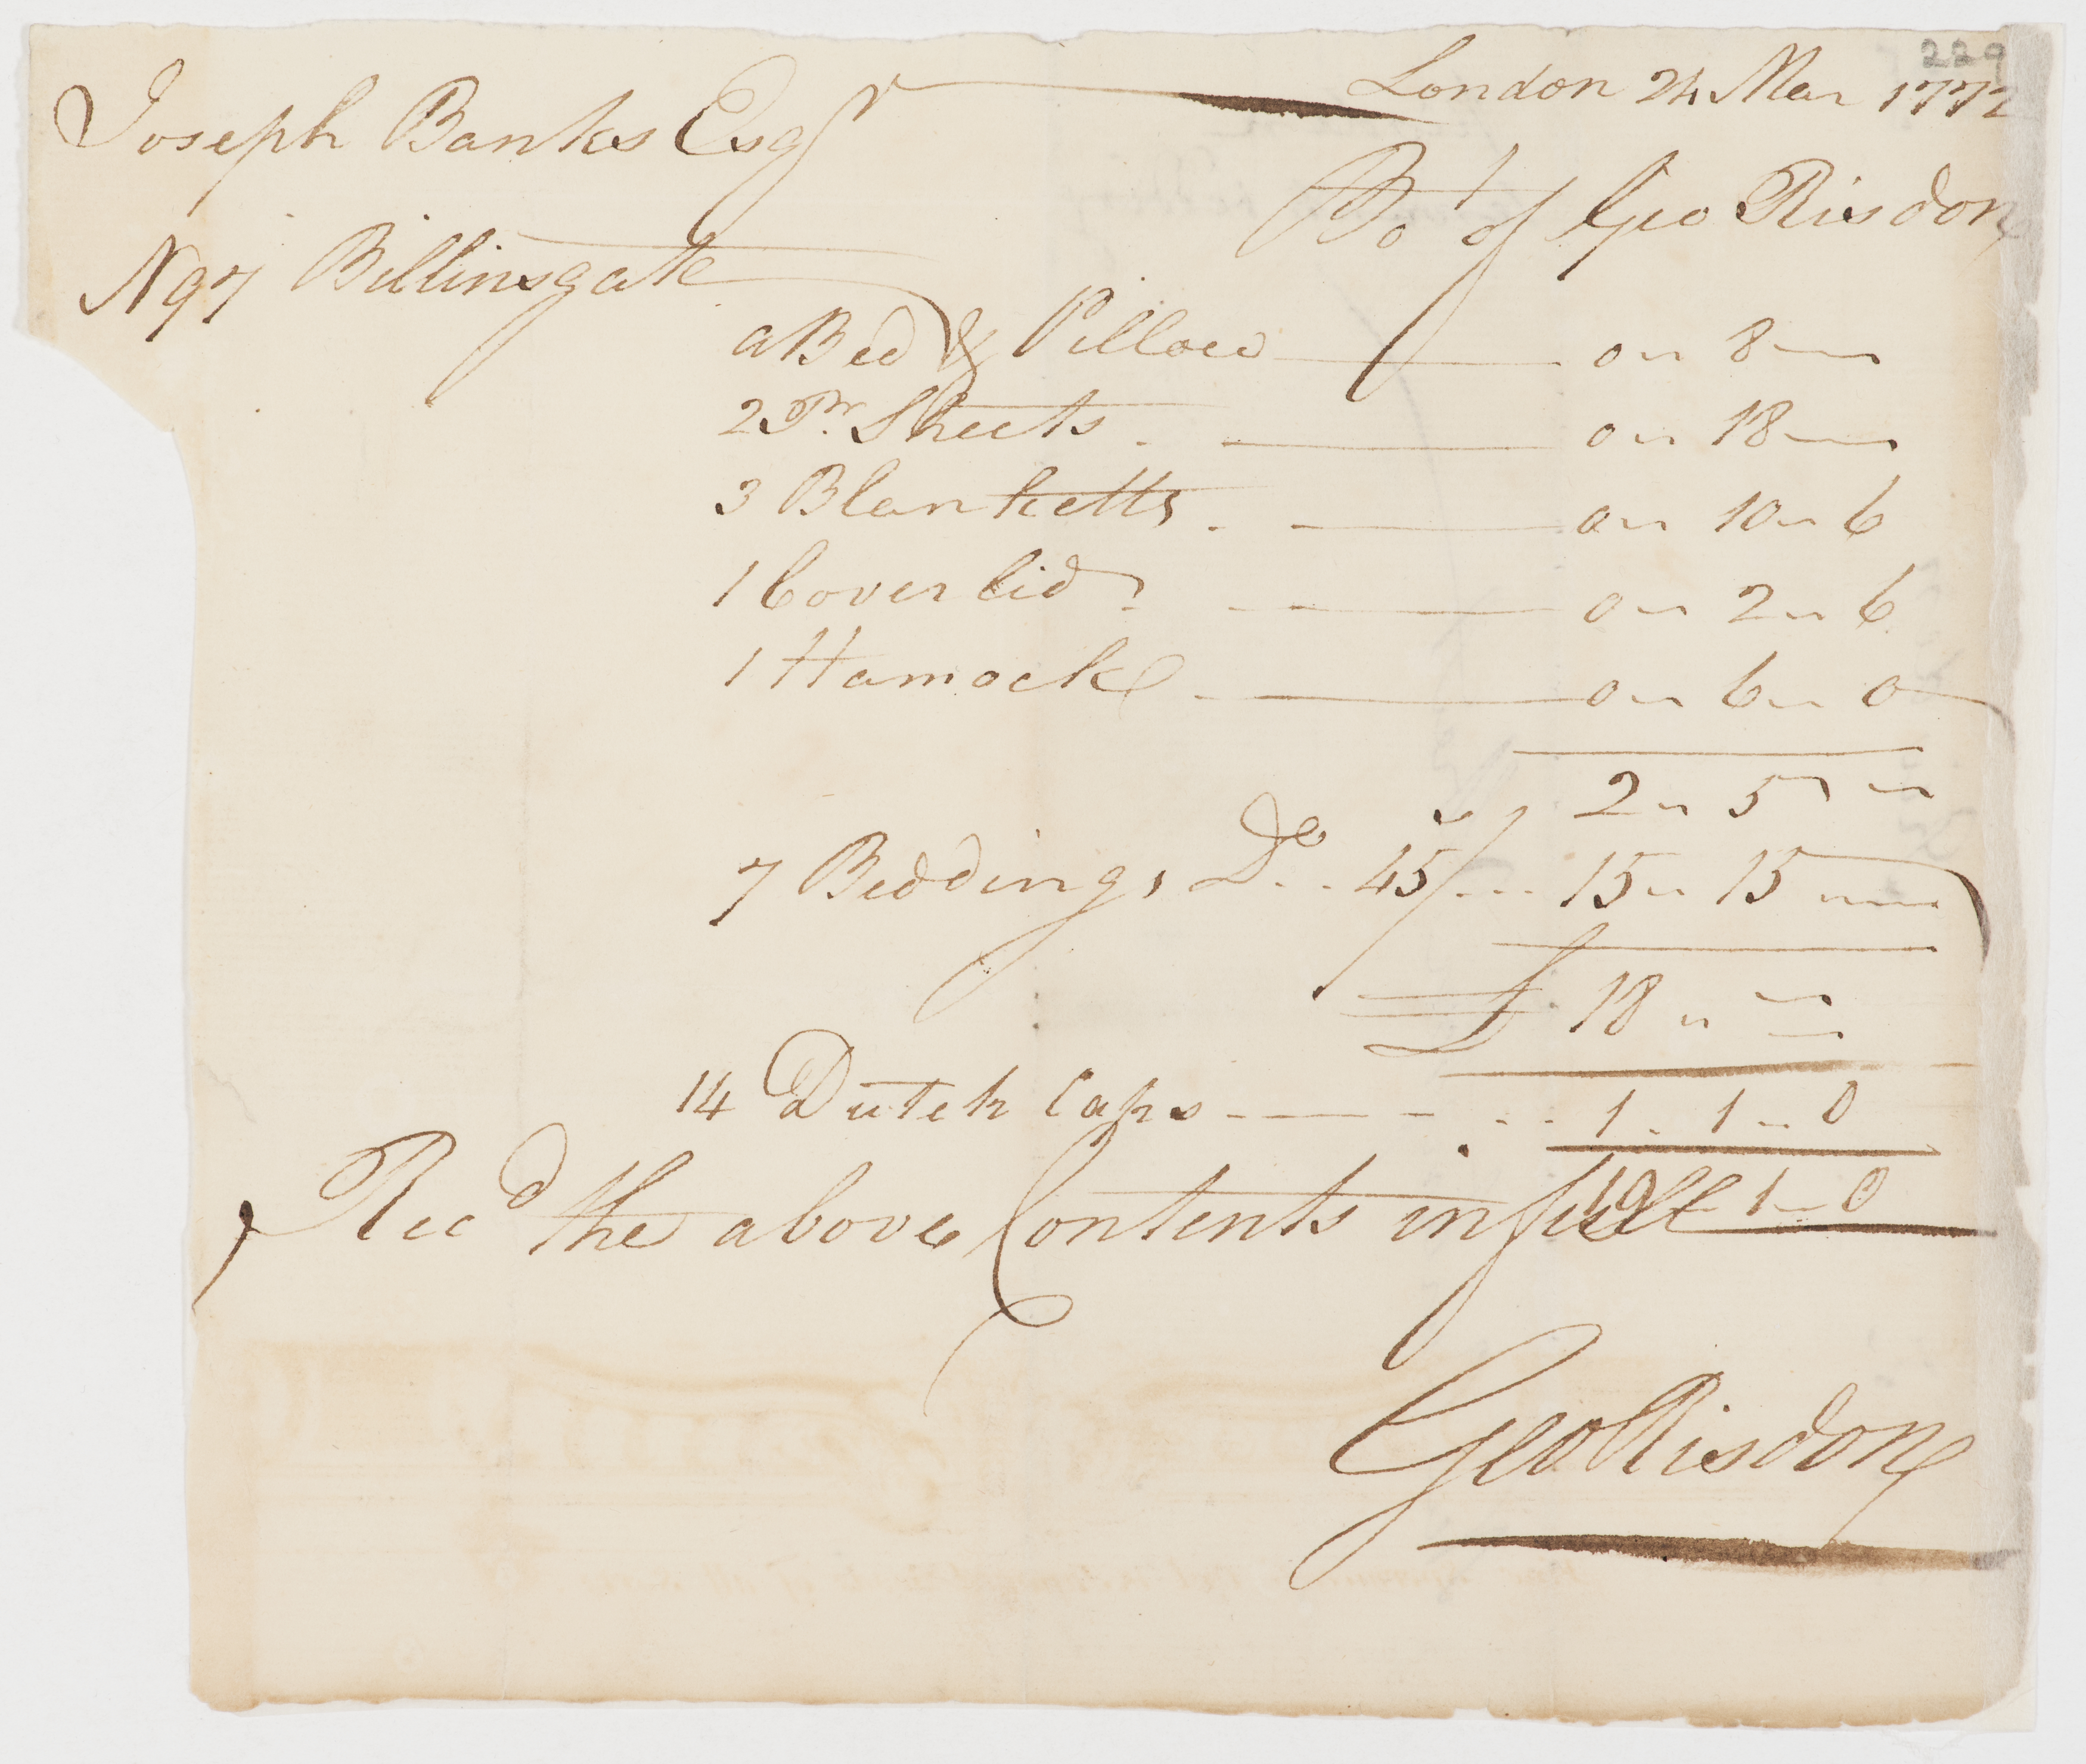 229
Joseph Banks Esqr London 24 Mar 1772
Bot of Geo Risdon
N 97 Billinsgate
a Bed & Pillow 0 " 8 "
2 Pr. Sheets 0 " 18 "
3 Blanketts 0 " 10 " 6
1 Coverlid 0 " 2 " 6
1 Hamock 0 " 6 " 0
2 " 5 "
7 Beddings Do 45/ 15 " 15 "
£ 18 " "
14 Dutch Caps 1 - 1 - 0
19 - 1 - 0
Recd the above Contents in full
Geo Risdon